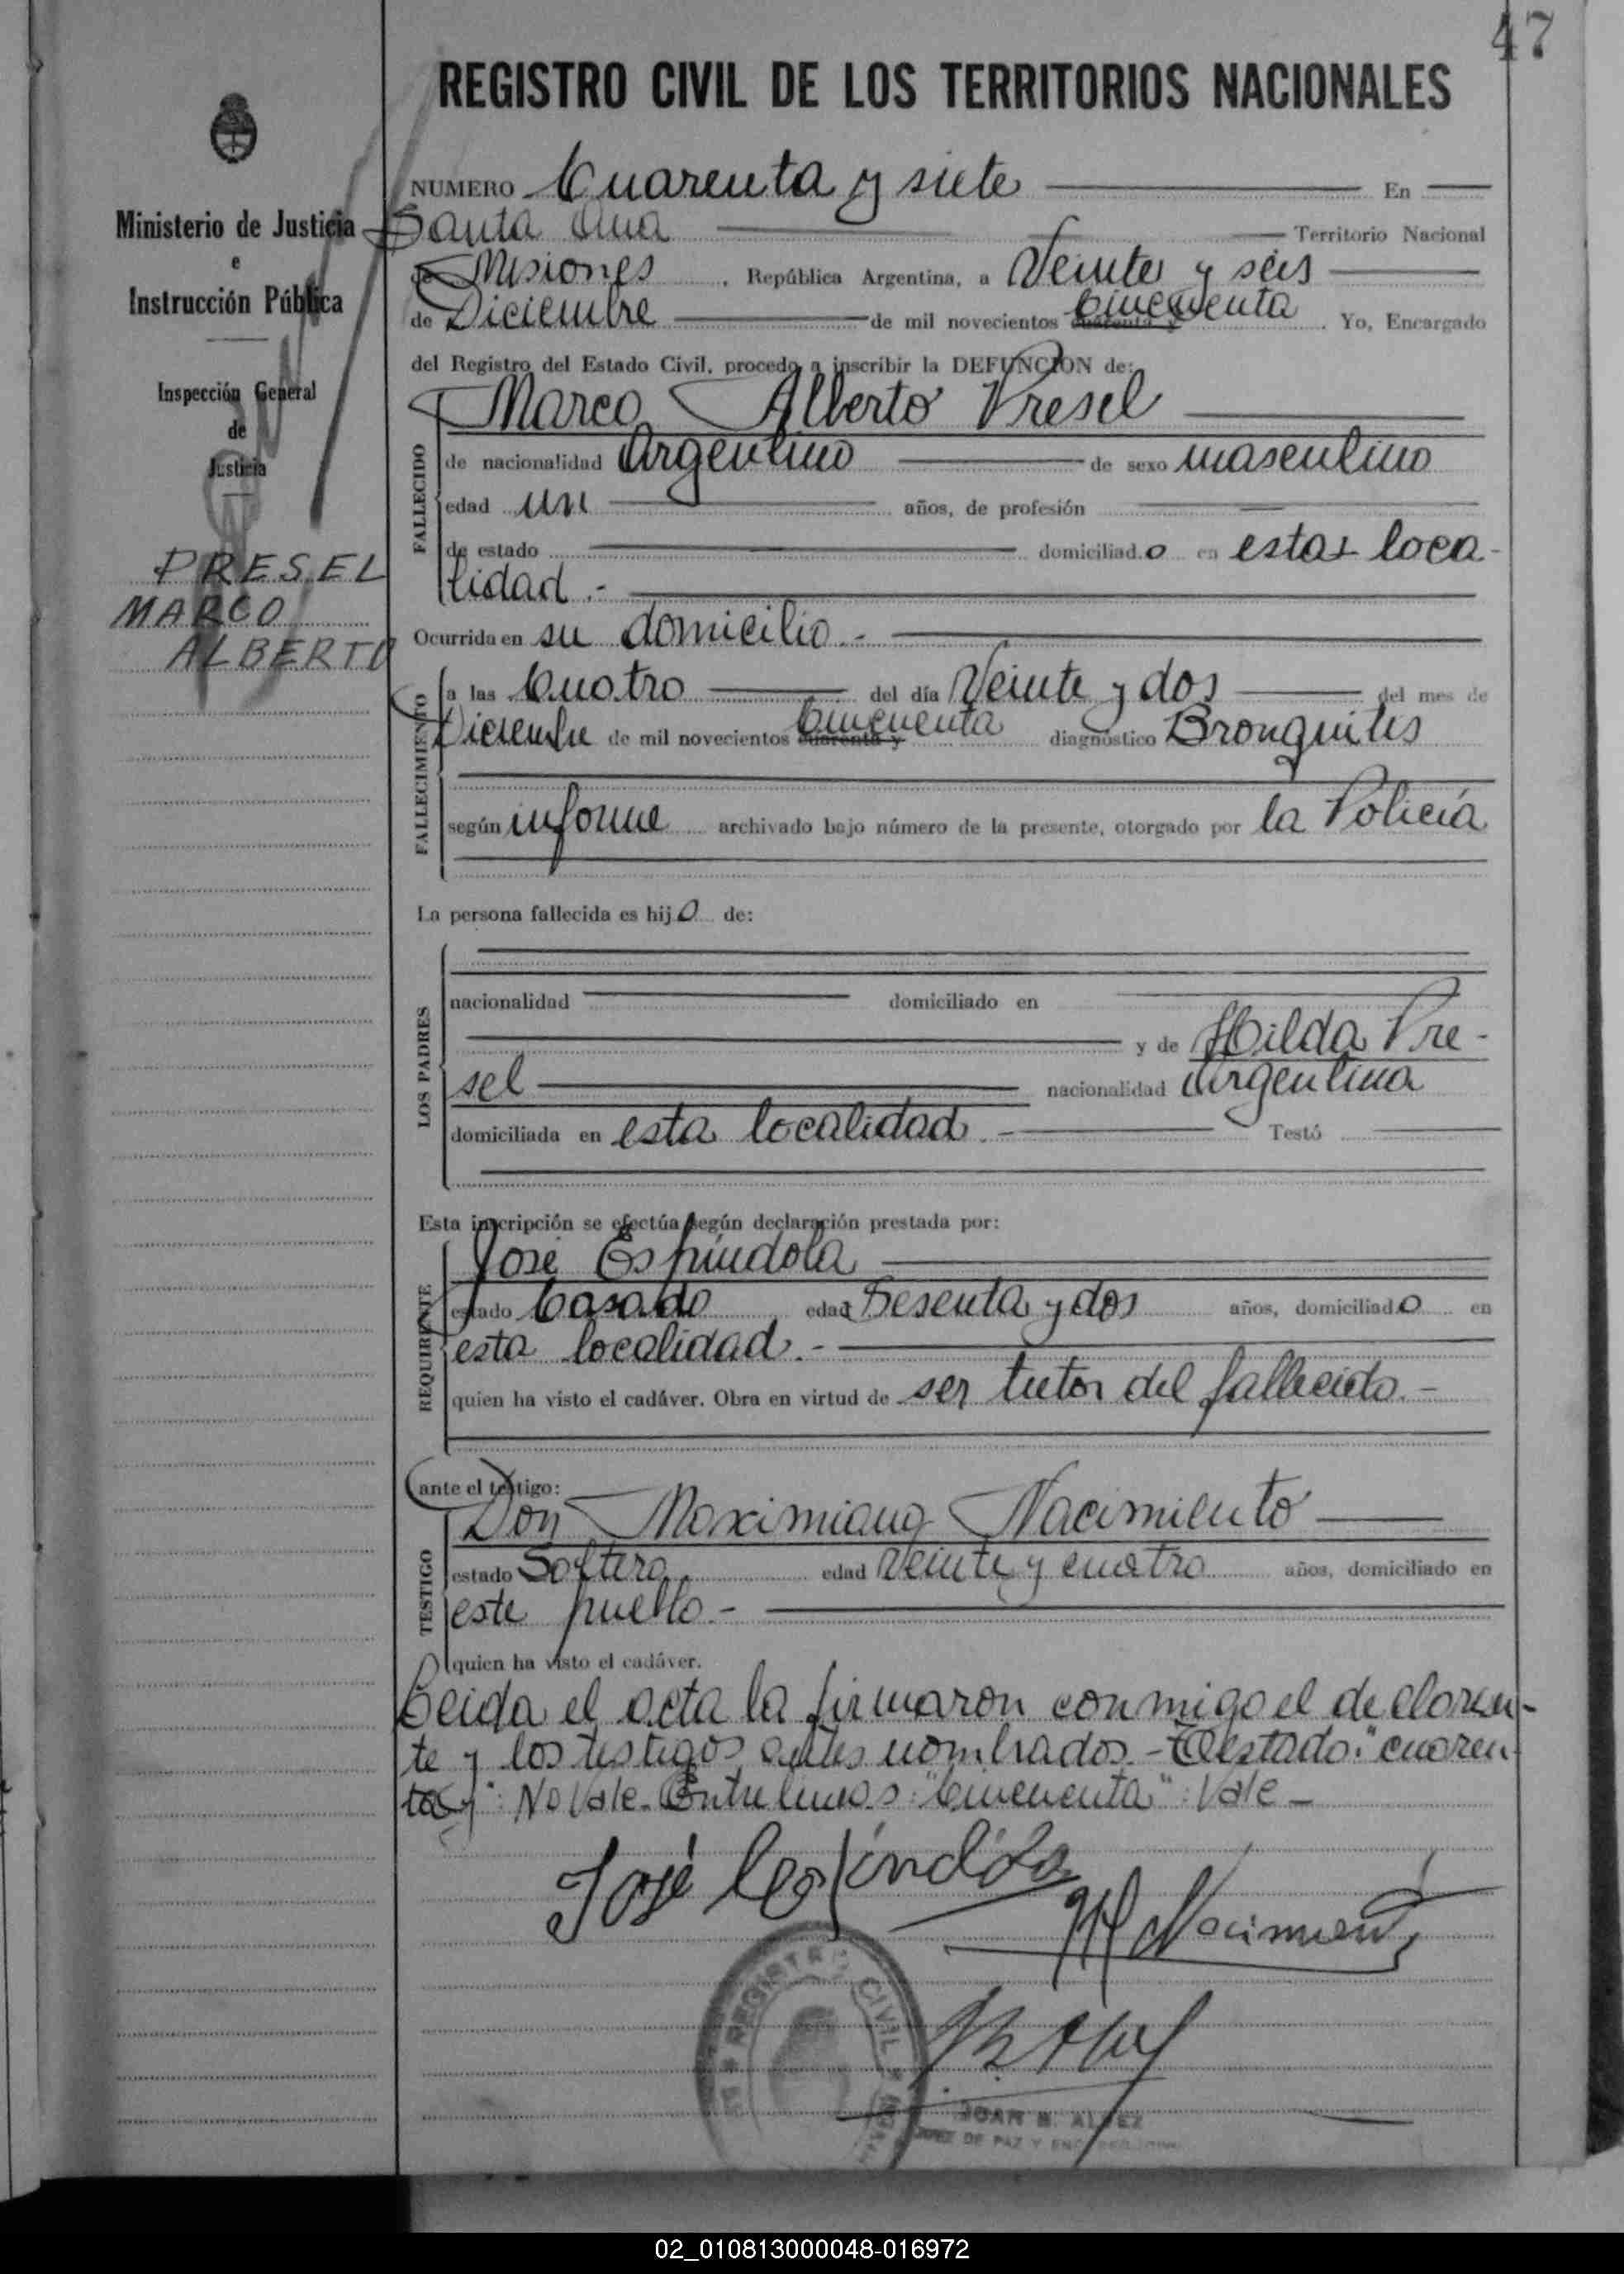 47
REGISTRO CIVIL DE LOS TERRITORIOS NACIONALES
Ministerio de Justicia
e
Instrucción Pública
Inspección General
de
Justicia
PRESEL
MARCO
ALBERTO
NUMERO Cuarenta y siete En
Santa Ana Territorio Nacional
de Misiones, República Argentina, a Veinte y seis
de Diciembre de mil novecientos cuarenta y Cincuenta. Yo, Encargado
del Registro del Estado Civil, procedo a inscribir la DEFUNCION de:
Marco Alberto Presel
FALLECIDO
de nacionalidad Argentino de sexo masculino
edad un años, de profesión
de estado domiciliado en esta loca-
lidad.-
Ocurrida en su domicilio.-
FALLECIMIENTO
a las Cuatro del día Veinte y dos del mes de
Diciembre de mil novecientos cuarenta y Cincuenta diagnóstico Bronquitis
según informe archivado bajo número de la presente, otorgado por la Policía
La persona fallecida es hijo de:
LOS PADRES
nacionalidad domiciliado en
y de Hilda Pre-
sel nacionalidad Argentina
domiciliada en esta localidad.- Testó
Esta inscripción se efectúa según declaración prestada por:
REQUIRENTE
José Espíndola
estado Casado edad Sesenta y dos años, domiciliado en
esta localidad.-
quien ha visto el cadáver. Obra en virtud de ser tutor del fallecido.-
ante el testigo:
TESTIGO
Don Maximiano Nacimiento
estado Soltero edad Veinte y cuatro años, domiciliado en
este pueblo.-
quien ha visto el cadáver.
Leida el acta la firmaron conmigo el declaran-
te y los testigos antes nombrados.- Testado: "cuaren-
ta y": No Vale. Entre lineas: "Cincuenta": Vale-
José Espíndola
M Nacimiento
REGISTRO CIVIL
JUAN B. ALVEZ
JUEZ DE PAZ Y ENC.
02_010813000048-016972